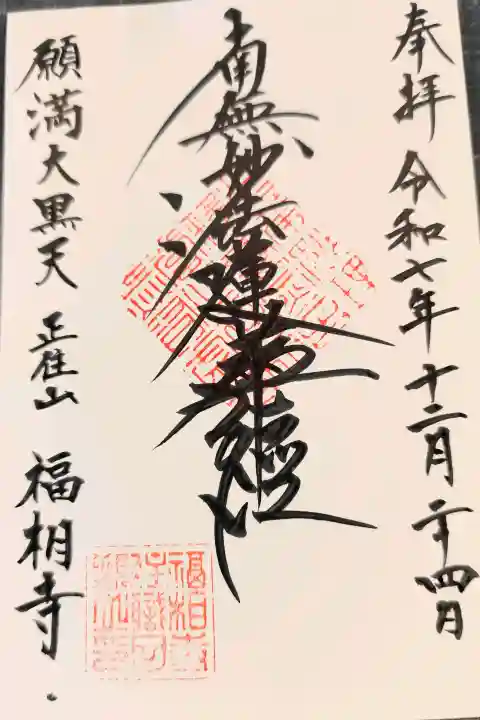 奉拝 令和七年 十二月 二十四日
南無妙法蓮華経
願満大黒天 正住山 福相寺